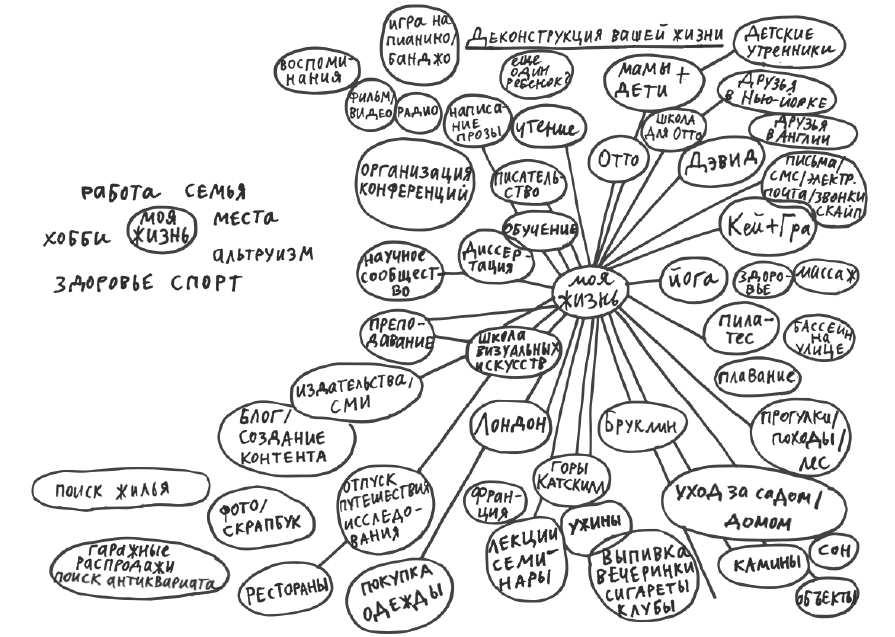 Деконструкция вашей жизни
игра на
пианино/
банджо
воспоми-
нания
фильм/
видео
радио
еще
один
ребенок?
мамы +
дети
детские
утренники
написа-
ние
прозы
чтение
школа
для Отто
друзья
в Нью-Йорке
друзья
в Англии
организация
конференций
писатель-
ство
Отто
Дэвид
письма/
смс/электр.
почта/звонки
скайп
работа семья
моя
жизнь
места
хобби
альтруизм
здоровье спорт
обучение
Кей+Гра
научное
сообщест
во
диссер-
тация
моя
жизнь
йога
здоро-
вье
массаж
препо-
давание
школа
визуальных
искусств
пила-
тес
бассейн
на
улице
издательства/
СМИ
плавание
блог/
создание
контента
Лондон
Бруклин
прогулки/
походы/
лес
поиск жилья
фото/
скрапбук
отпуск
путешествия
исследо-
вания
Фран-
ция
горы
Катскилл
уход за садом/
домом
гаражные
распродажи
поиск антиквариата
рестораны
покупка
одежды
лекции
семи-
нары
ужины
выпивка
вечеринки
сигареты
клубы
камины
сон
объекты